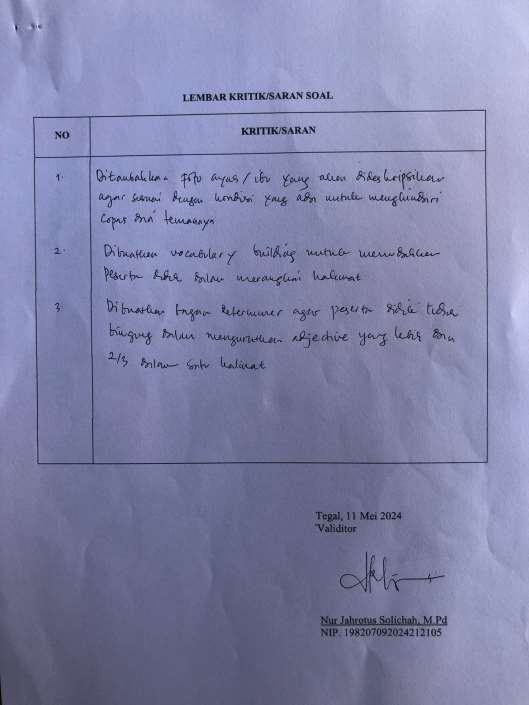 LEMBAR KRITIK/SARAN SOAL
NO
KRITIK/SARAN
1.
Ditambahkan foto ayah/ibu yang akan dideskripsikan
agar sesuai dengan kondisi yang ada untuk menghindari
copas dari temannya
2.
Dibuatkan vocabulary building untuk memudahkan
peserta didik dalam merangkai kalimat
3
Dibuatkan bagan determiner agar peserta didik tidak
bingung dalam mengurutkan adjective yang lebih dari
2/3 dalam satu kalimat
Tegal, 11 Mei 2024
Validitor
Nur Jahrotus Solichah, M.Pd
NIP. 198207092024212105